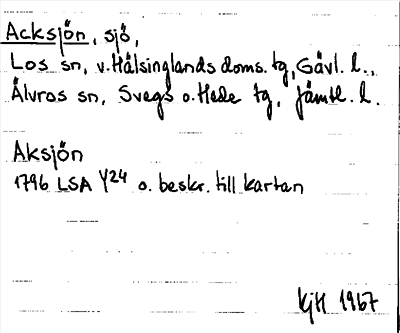 Acksjön, sjö,
Los sn, v. Hälsinglands doms. tg, Gävl. l.,
Älvros sn, Svegs o. Hede tg, Jämtl. l.
Aksjön
1796 LSA Y24 o. beskr. till kartan
KjH 1967